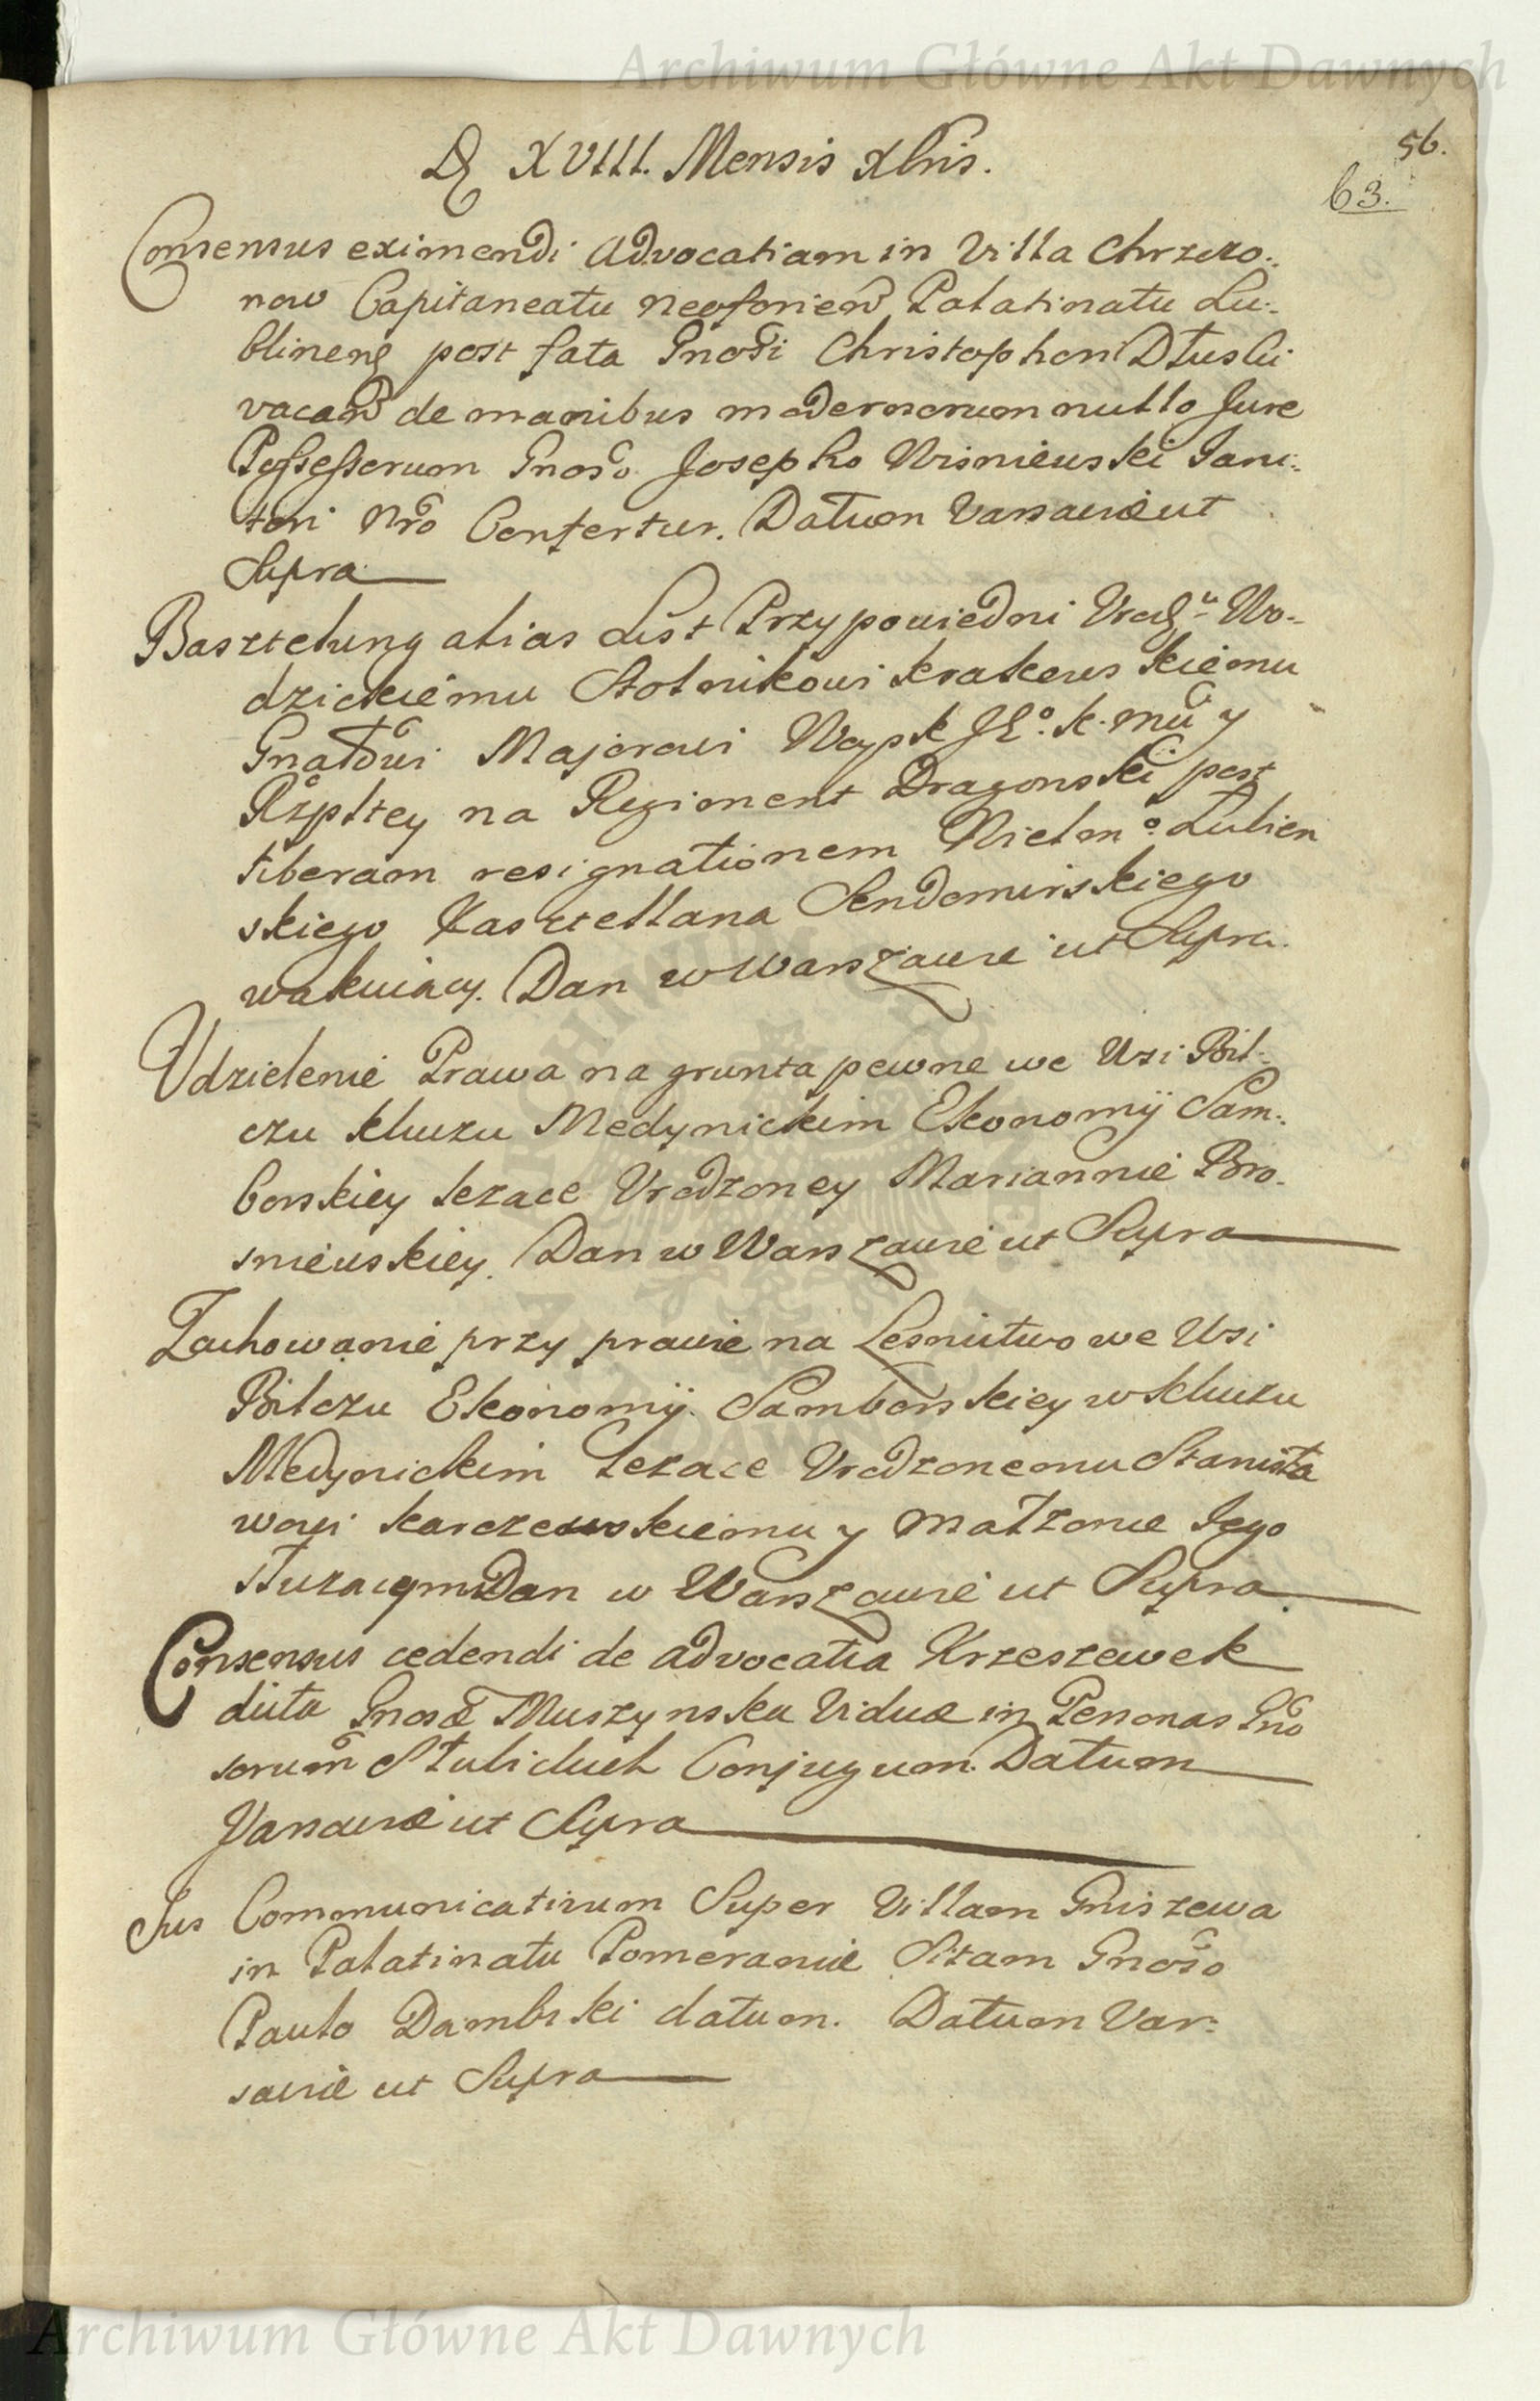 Archiwum Główne Akt Dawnych
56.
D XVIII. Mensis Xbris.
63.
Consensus eximendi Advocatiam in Villa Chrzczo:
now Capitaneatu Neoforien Palatinatu Lu:
blinens post fata Gnosi Christophori Dłuski
vacan de manibus modernorum nullo Jure
Possessorum Gnoso Josepho Wisniewski Jani:
tori Nro Confertur. Datum Varsaviæ ut
Supra
Basztelung alias List Przypowiedni Urodu Wo-
dzickiemu Stolnikowi Krakowskiemu
Gnałowi Majorowi Woysk JKo. K. Mci y
Rzpltey na Regiment Dragonski post
liberam resignationem Wielmo. Lubien
skiego Kasztellana Sendomirskiego
wakuiący. Dan w Warszawie ut Supra.
Udzielenie Prawa na grunta pewne we Wsi Bil-
czu kluzu Medynickim Ekonomij Sam:
borskiey lezące Urodzoney Mariannie Bro-
sniewskiey. Dan w Warszawie ut Supra
Zachowanie przy prawie na Lesnictwo we Wsi
Bilczu Ekonomij Samborskiey w kluzu
Medynickim lezące Urodzonemu Stanisła
wowi Karczewskiemu y małzonce Jego
słuzącym Dan w Warszawie ut Supra
Consensus cedendi de advocatia Krzeszewek
dicta Gnosæ Muszynska Viduæ in Personas Gno
sorum Stulickich Conjugum. Datum
Varsaviæ ut Supra
Jus Communicativum Super Villam Gniszewa
in Palatinatu Pomeraniæ Sitam Gnoso
Paulo Dambski datum. Datum Var:
saviæ ut Supra
Archiwum Główne Akt Dawnych